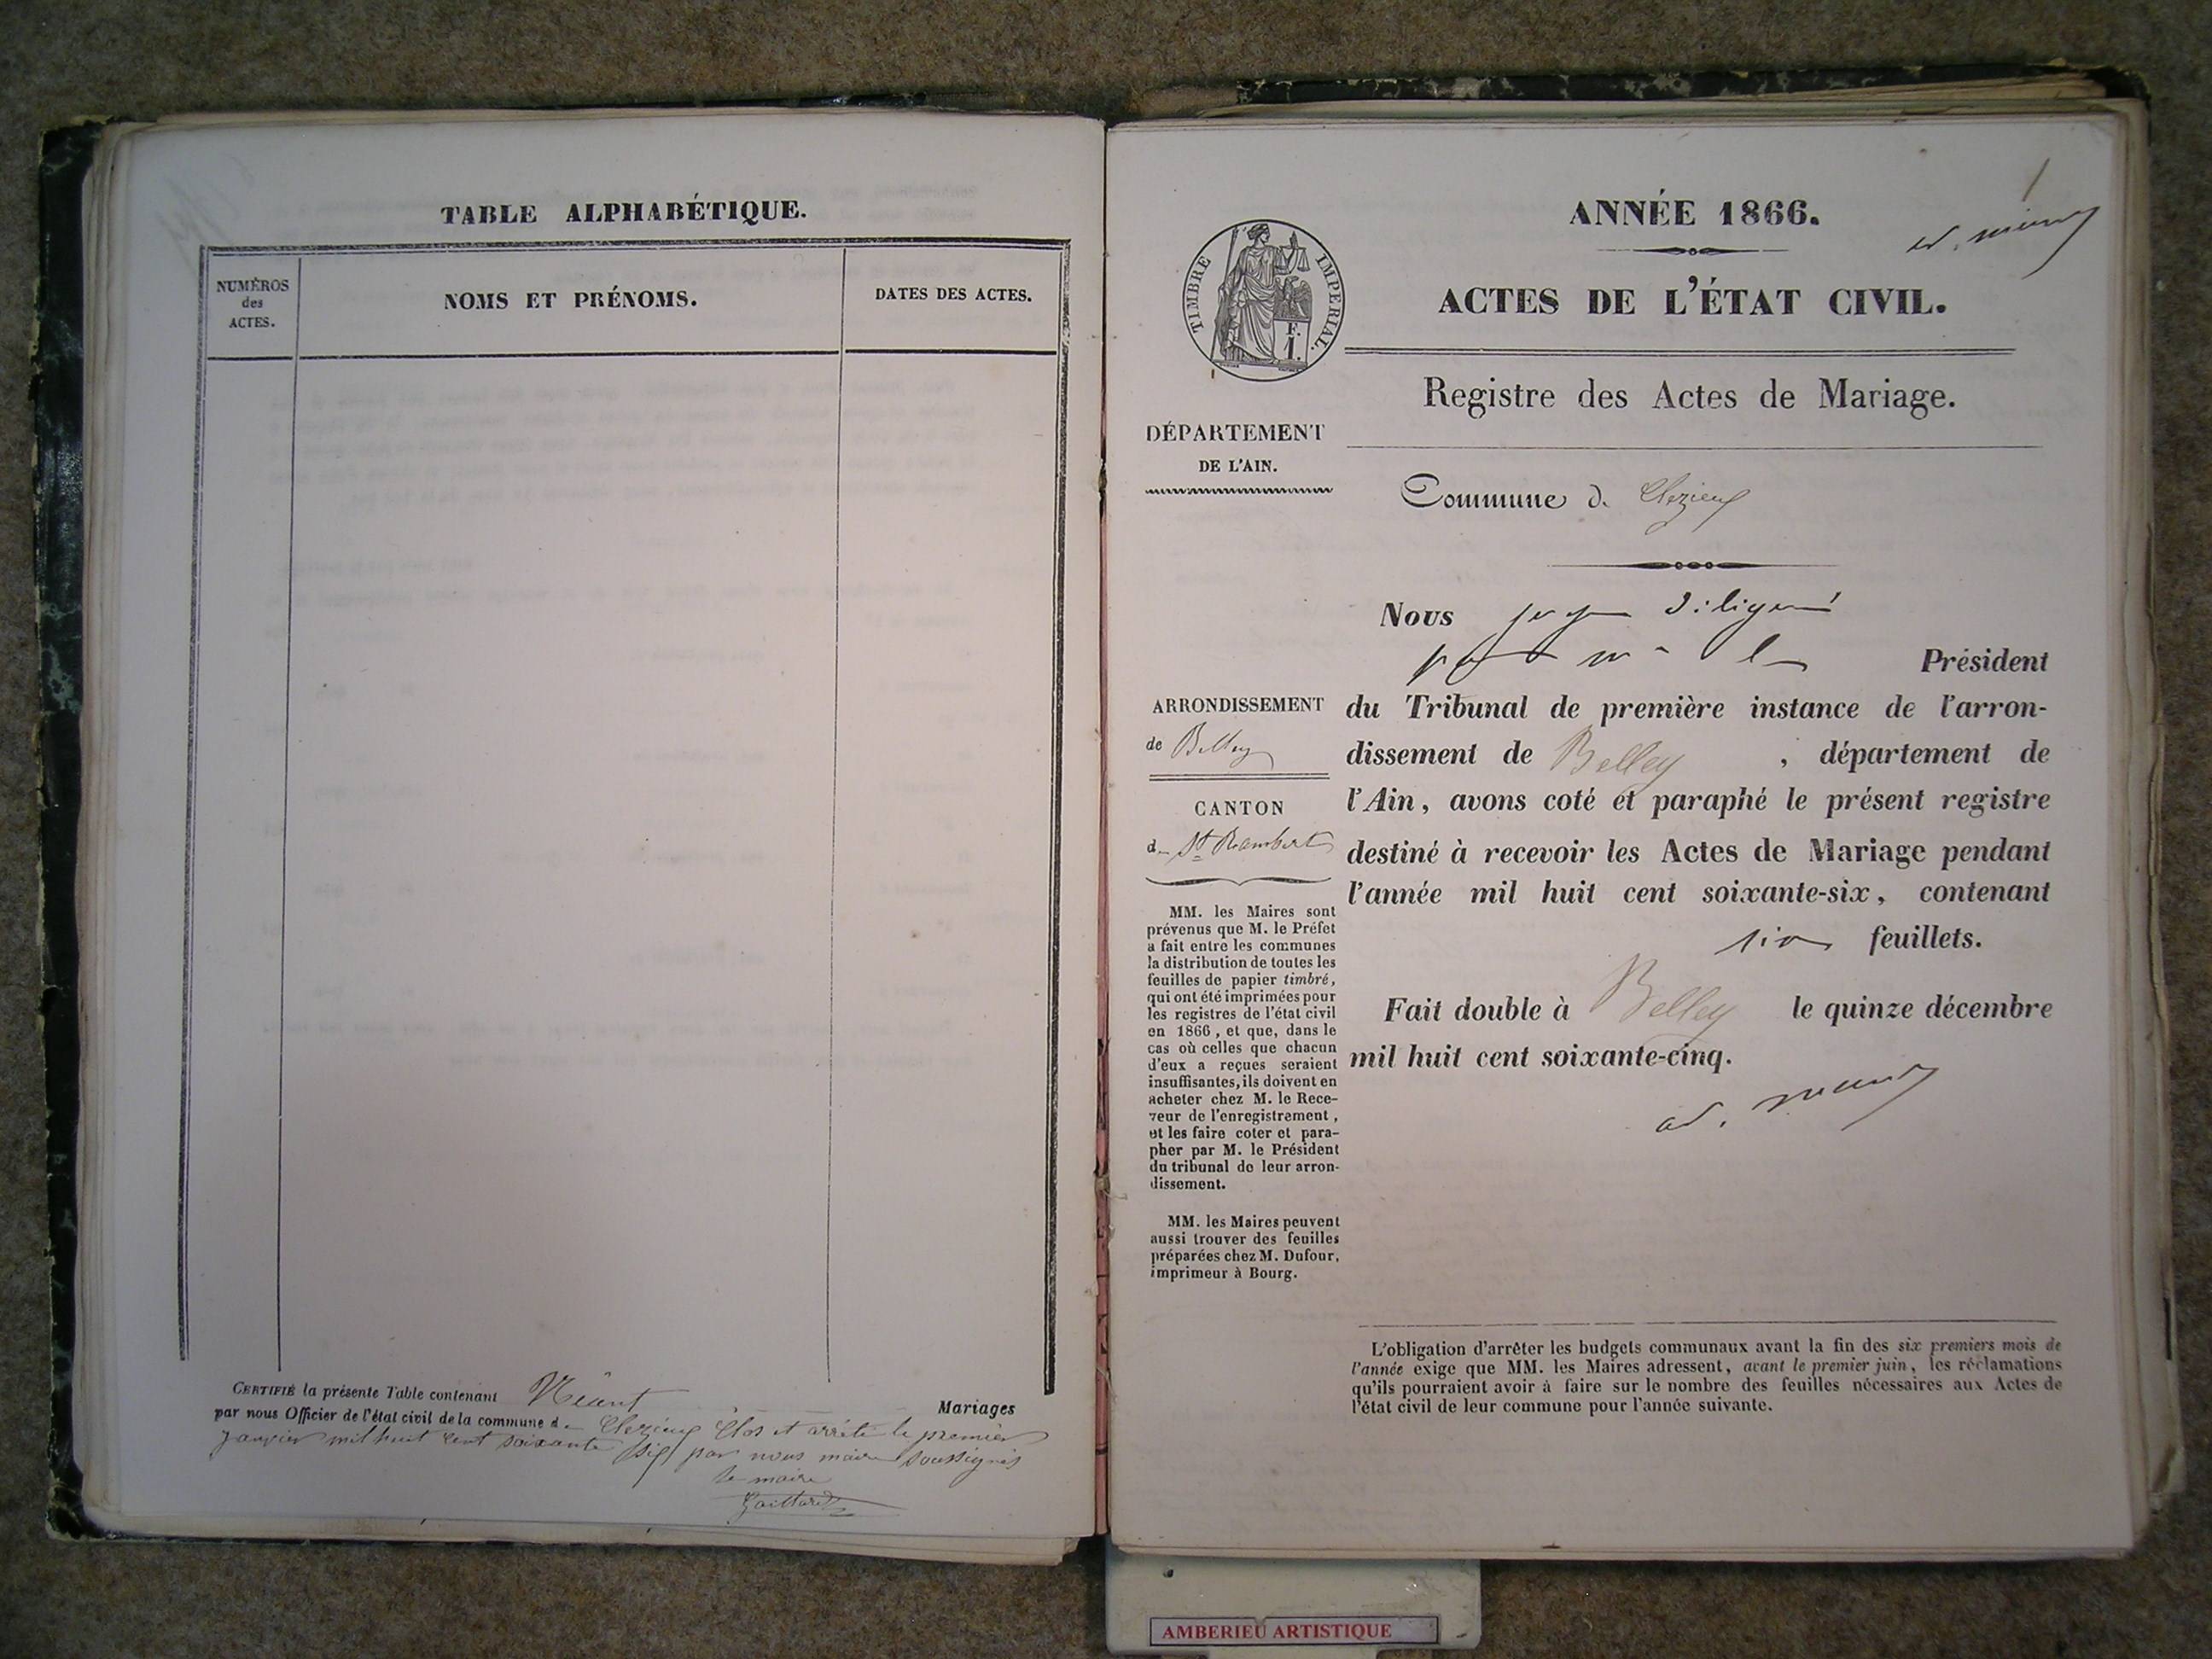 TABLE ALPHABÉTIQUE.
NUMÉROS
des
ACTES.
NOMS ET PRÉNOMS.
DATES DES ACTES.
CERTIFIÉ la présente Table contenant Néant Mariages
par nous Officier de l'état civil de la commune de Clezieux Clos et arrêté le premier
janvier mil huit cent soixante six par nous maire soussignés
le maire
Gaillard
ANNÉE 1866.
1
TIMBRE IMPERIAL.
F.
1.
ACTES DE L'ÉTAT CIVIL.
Registre des Actes de Mariage.
DÉPARTEMENT
DE L'AIN.
Commune de Clezieux
Nous
Président
ARRONDISSEMENT
de Belley
du Tribunal de première instance de l'arron-
dissement de Belley , département de
l'Ain, avons coté et paraphé le présent registre
destiné à recevoir les Actes de Mariage pendant
l'année mil huit cent soixante-six, contenant
six feuillets.
Fait double à Belley le quinze décembre
mil huit cent soixante-cinq.
CANTON
de St Rambert
MM. les Maires sont
prévenus que M. le Préfet
a fait entre les communes
la distribution de toutes les
feuilles de papier timbré,
qui ont été imprimées pour
les registres de l'état civil
en 1866, et que, dans le
cas où celles que chacun
d'eux a reçues seraient
insuffisantes, ils doivent en
acheter chez M. le Rece-
veur de l'enregistrement,
et les faire coter et para-
pher par M. le Président
du tribunal de leur arron-
dissement.
MM. les Maires peuvent
aussi trouver des feuilles
préparées chez M. Dufour,
imprimeur à Bourg.
L'obligation d'arrêter les budgets communaux avant la fin des six premiers mois de
l'année exige que MM. les Maires adressent, avant le premier juin, les réclamations
qu'ils pourraient avoir à faire sur le nombre des feuilles nécessaires aux Actes de
l'état civil de leur commune pour l'année suivante.
AMBERIEU ARTISTIQUE